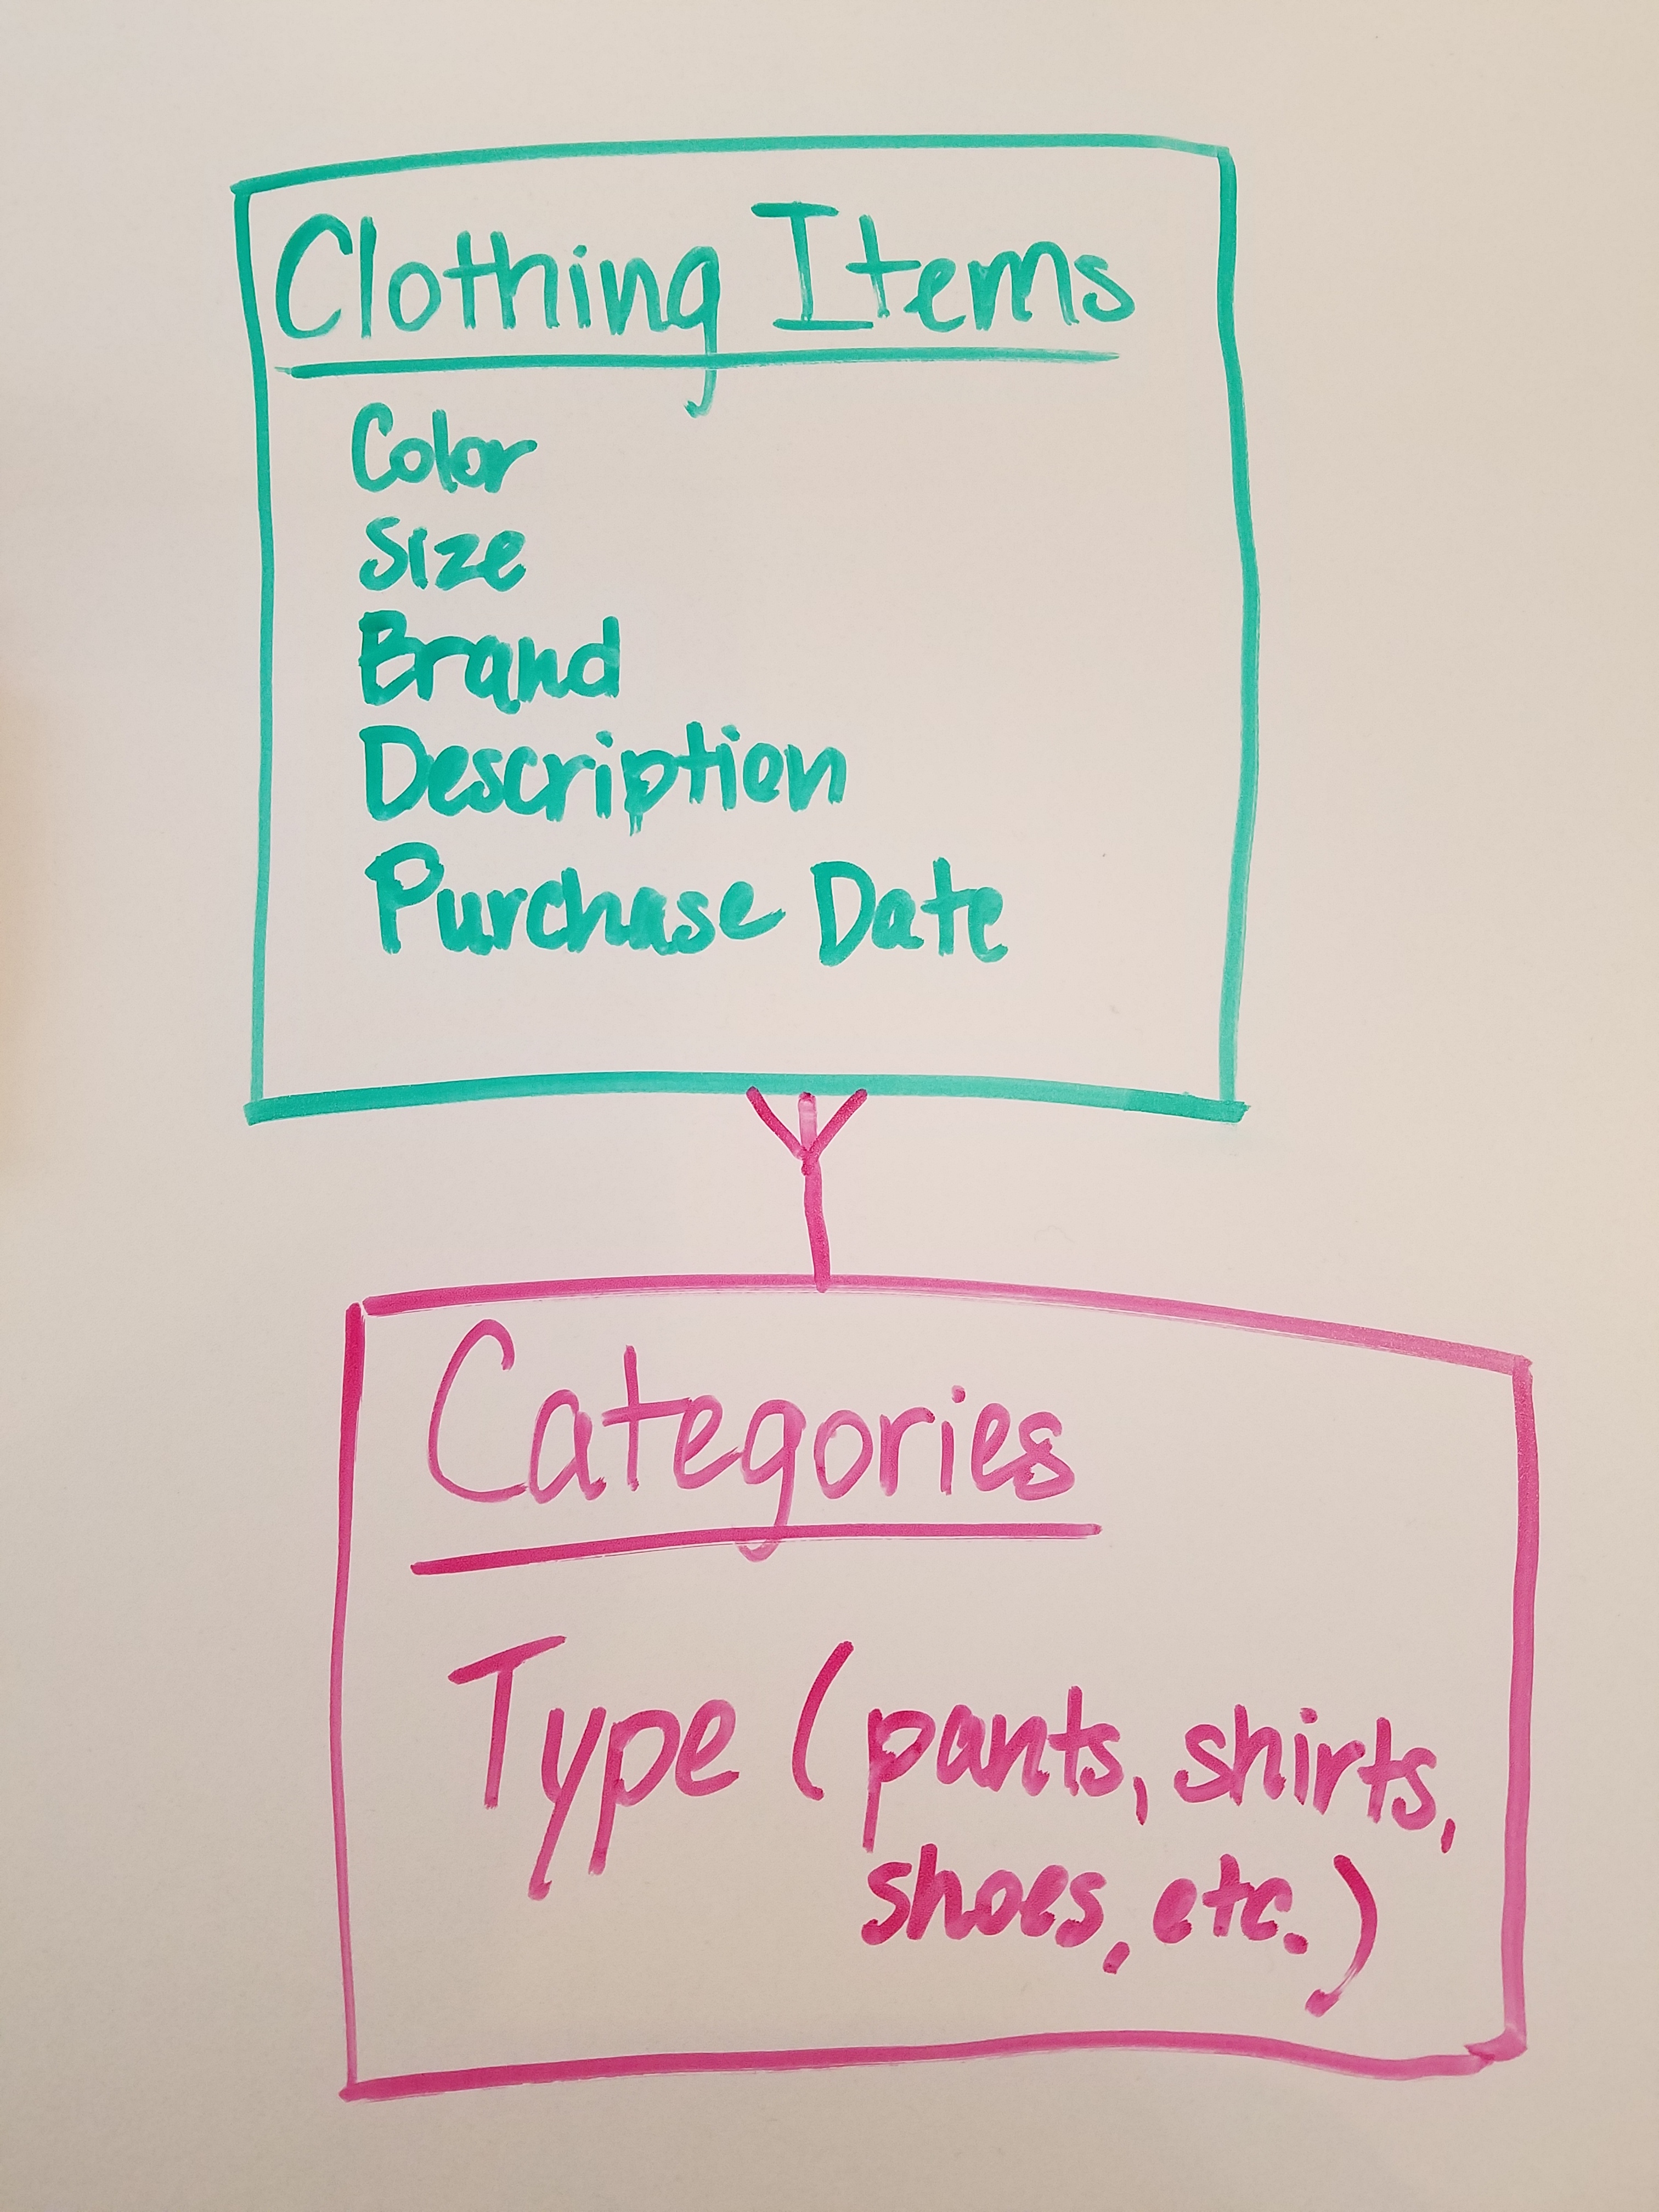 Clothing Items
Color
Size
Brand
Description
Purchase Date
Categories
Type (pants, shirts,
shoes, etc.)